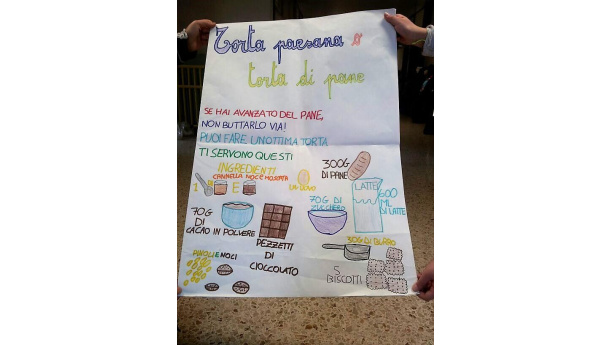 Torta paesana o
torta di pane
SE HAI AVANZATO DEL PANE,
NON BUTTARLO VIA!
PUOI FARE UN'OTTIMA TORTA
TI SERVONO QUESTI
INGREDIENTI
CANNELLA NOCE MOSCATA
1
E
UOVO
300G
DI PANE
LATTE
600
ML
DI LATTE
70G DI
ZUCCHERO
70G
DI
CACAO IN POLVERE
PEZZETTI
DI
CIOCCOLATO
30G DI BURRO
PINOLI E NOCI
5
BISCOTTI